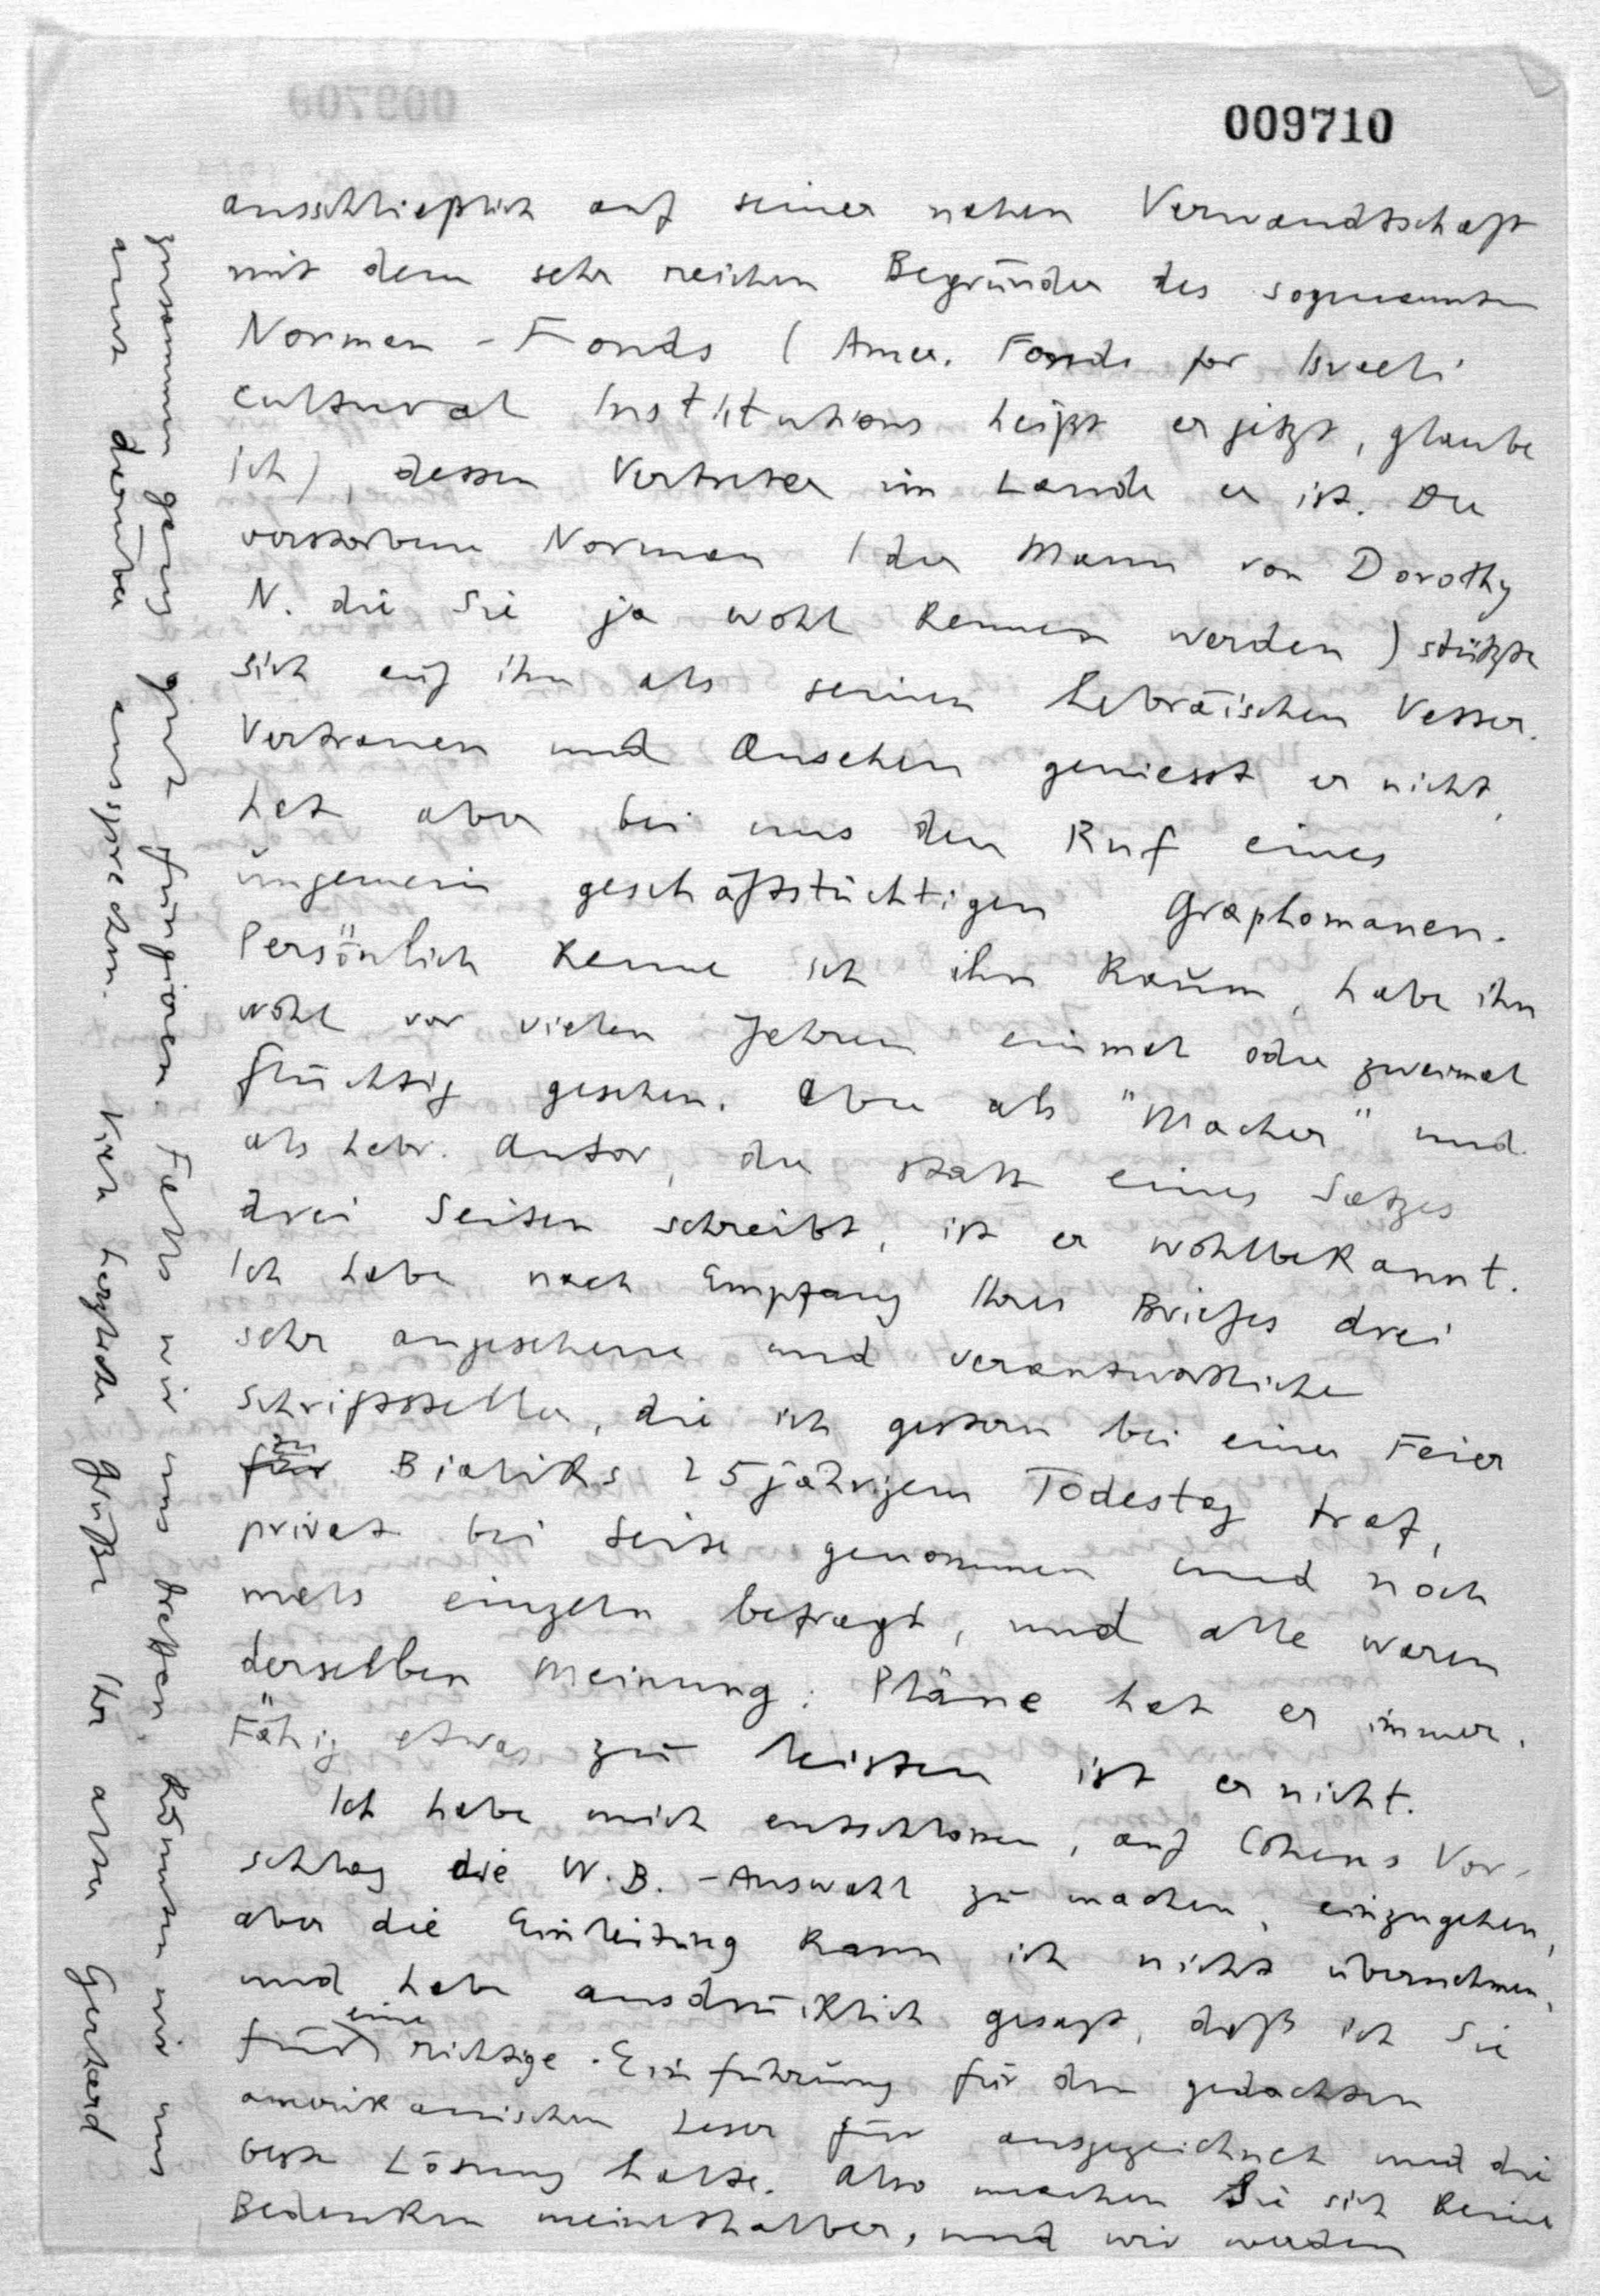 009710
ausschließlich auf seiner nahen Verwandtschaft
mit dem sehr reichen Begründer des sogenannten
Norman-Fonds (Amer. Fonds for Israeli
Cultural Institutions heißt er jetzt, glaube
ich), dessen Vertreter im Lande er ist. Der
verstorbene Norman (der Mann von Dorothy
N. die Sie ja wohl kennen werden) stützte
sich auf ihn als seinen hebräischen Vetter.
Vertrauen und Ansehen geniesst er nicht,
hat aber bei uns den Ruf eines
ungemein geschäftstüchtigen Graphomanen.
Persönlich kenne ich ihn kaum, habe ihn
wohl vor vielen Jahren einmal oder zweimal
flüchtig gesehen. Aber als "Macher" und
als hebr. Autor, der statt eines Satzes
drei Seiten schreibt, ist er wohlbekannt.
Ich habe nach Empfang Ihres Briefes drei
sehr angesehene und verantwortliche
Schriftsteller, die ich gestern bei einer Feier
für zu Bialiks 25jährigem Todestag traf,
privat bei Seite genommen und noch
mals einzeln befragt, und alle waren
derselben Meinung: Pläne hat er immer.
Fähig etwas zu leisten ist er nicht.
Ich habe mich entschlossen, auf Cohens Vor-
schlag die W.B.-Auswahl zu machen, einzugehen,
aber die Einleitung kann ich nicht übernehmen,
und habe ausdrücklich gesagt, daß ich Sie
für eine richtige Einführung für den gedachten
amerikanischen Leser für ausgezeichnet und die
beste Lösung halte. Also machen Sie sich keine
Bedenken meinethalber, und wir werden
zusammen ganz gut fungieren. Falls wir uns treffen, könnten wir uns
darüber aussprechen. Viele herzliche Grüße Ihr alter Gerhard